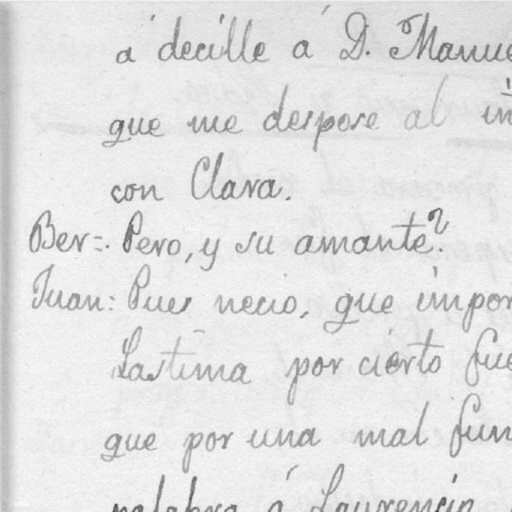 á decille á D. Manue
que me despose al in
con Clara.
Ber=. Pero, y su amante?
Juan: Pues necio, que impor
Lastima por cierto fue
que por una mal fun
palabra á Laurencia